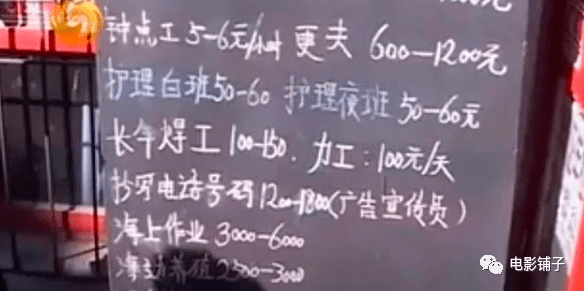 钟点工5-6元/小时 更夫 600—1200元
护理白班50-60 护理夜班 50-60元
长年焊工100-150. 力工:100元/天
抄写电话号码1200-1800(广告宣传员)
海上作业 3000-6000
养殖2500-3000
电影铺子